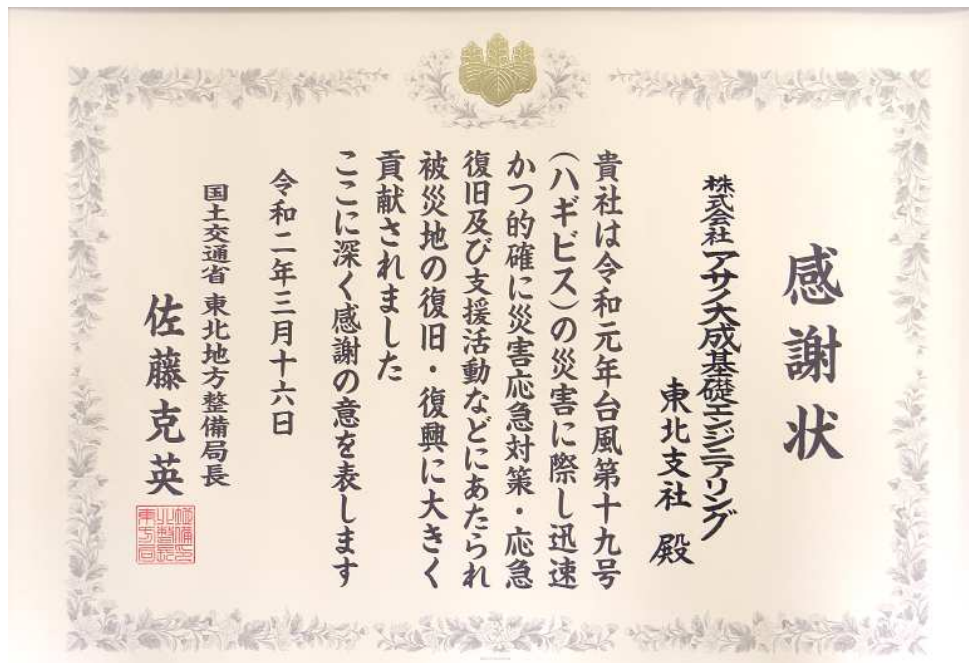 感謝状
株式会社アサノ大成基礎エンジニアリング
東北支社 殿
貴社は令和元年台風第十九号
(ハギビス)の災害に際し迅速
かつ的確に災害応急対策・応急
復旧及び支援活動などにあたられ
被災地の復旧・復興に大きく
貢献されました
ここに深く感謝の意を表します
令和二年三月十六日
国土交通省 東北地方整備局長
佐藤克英